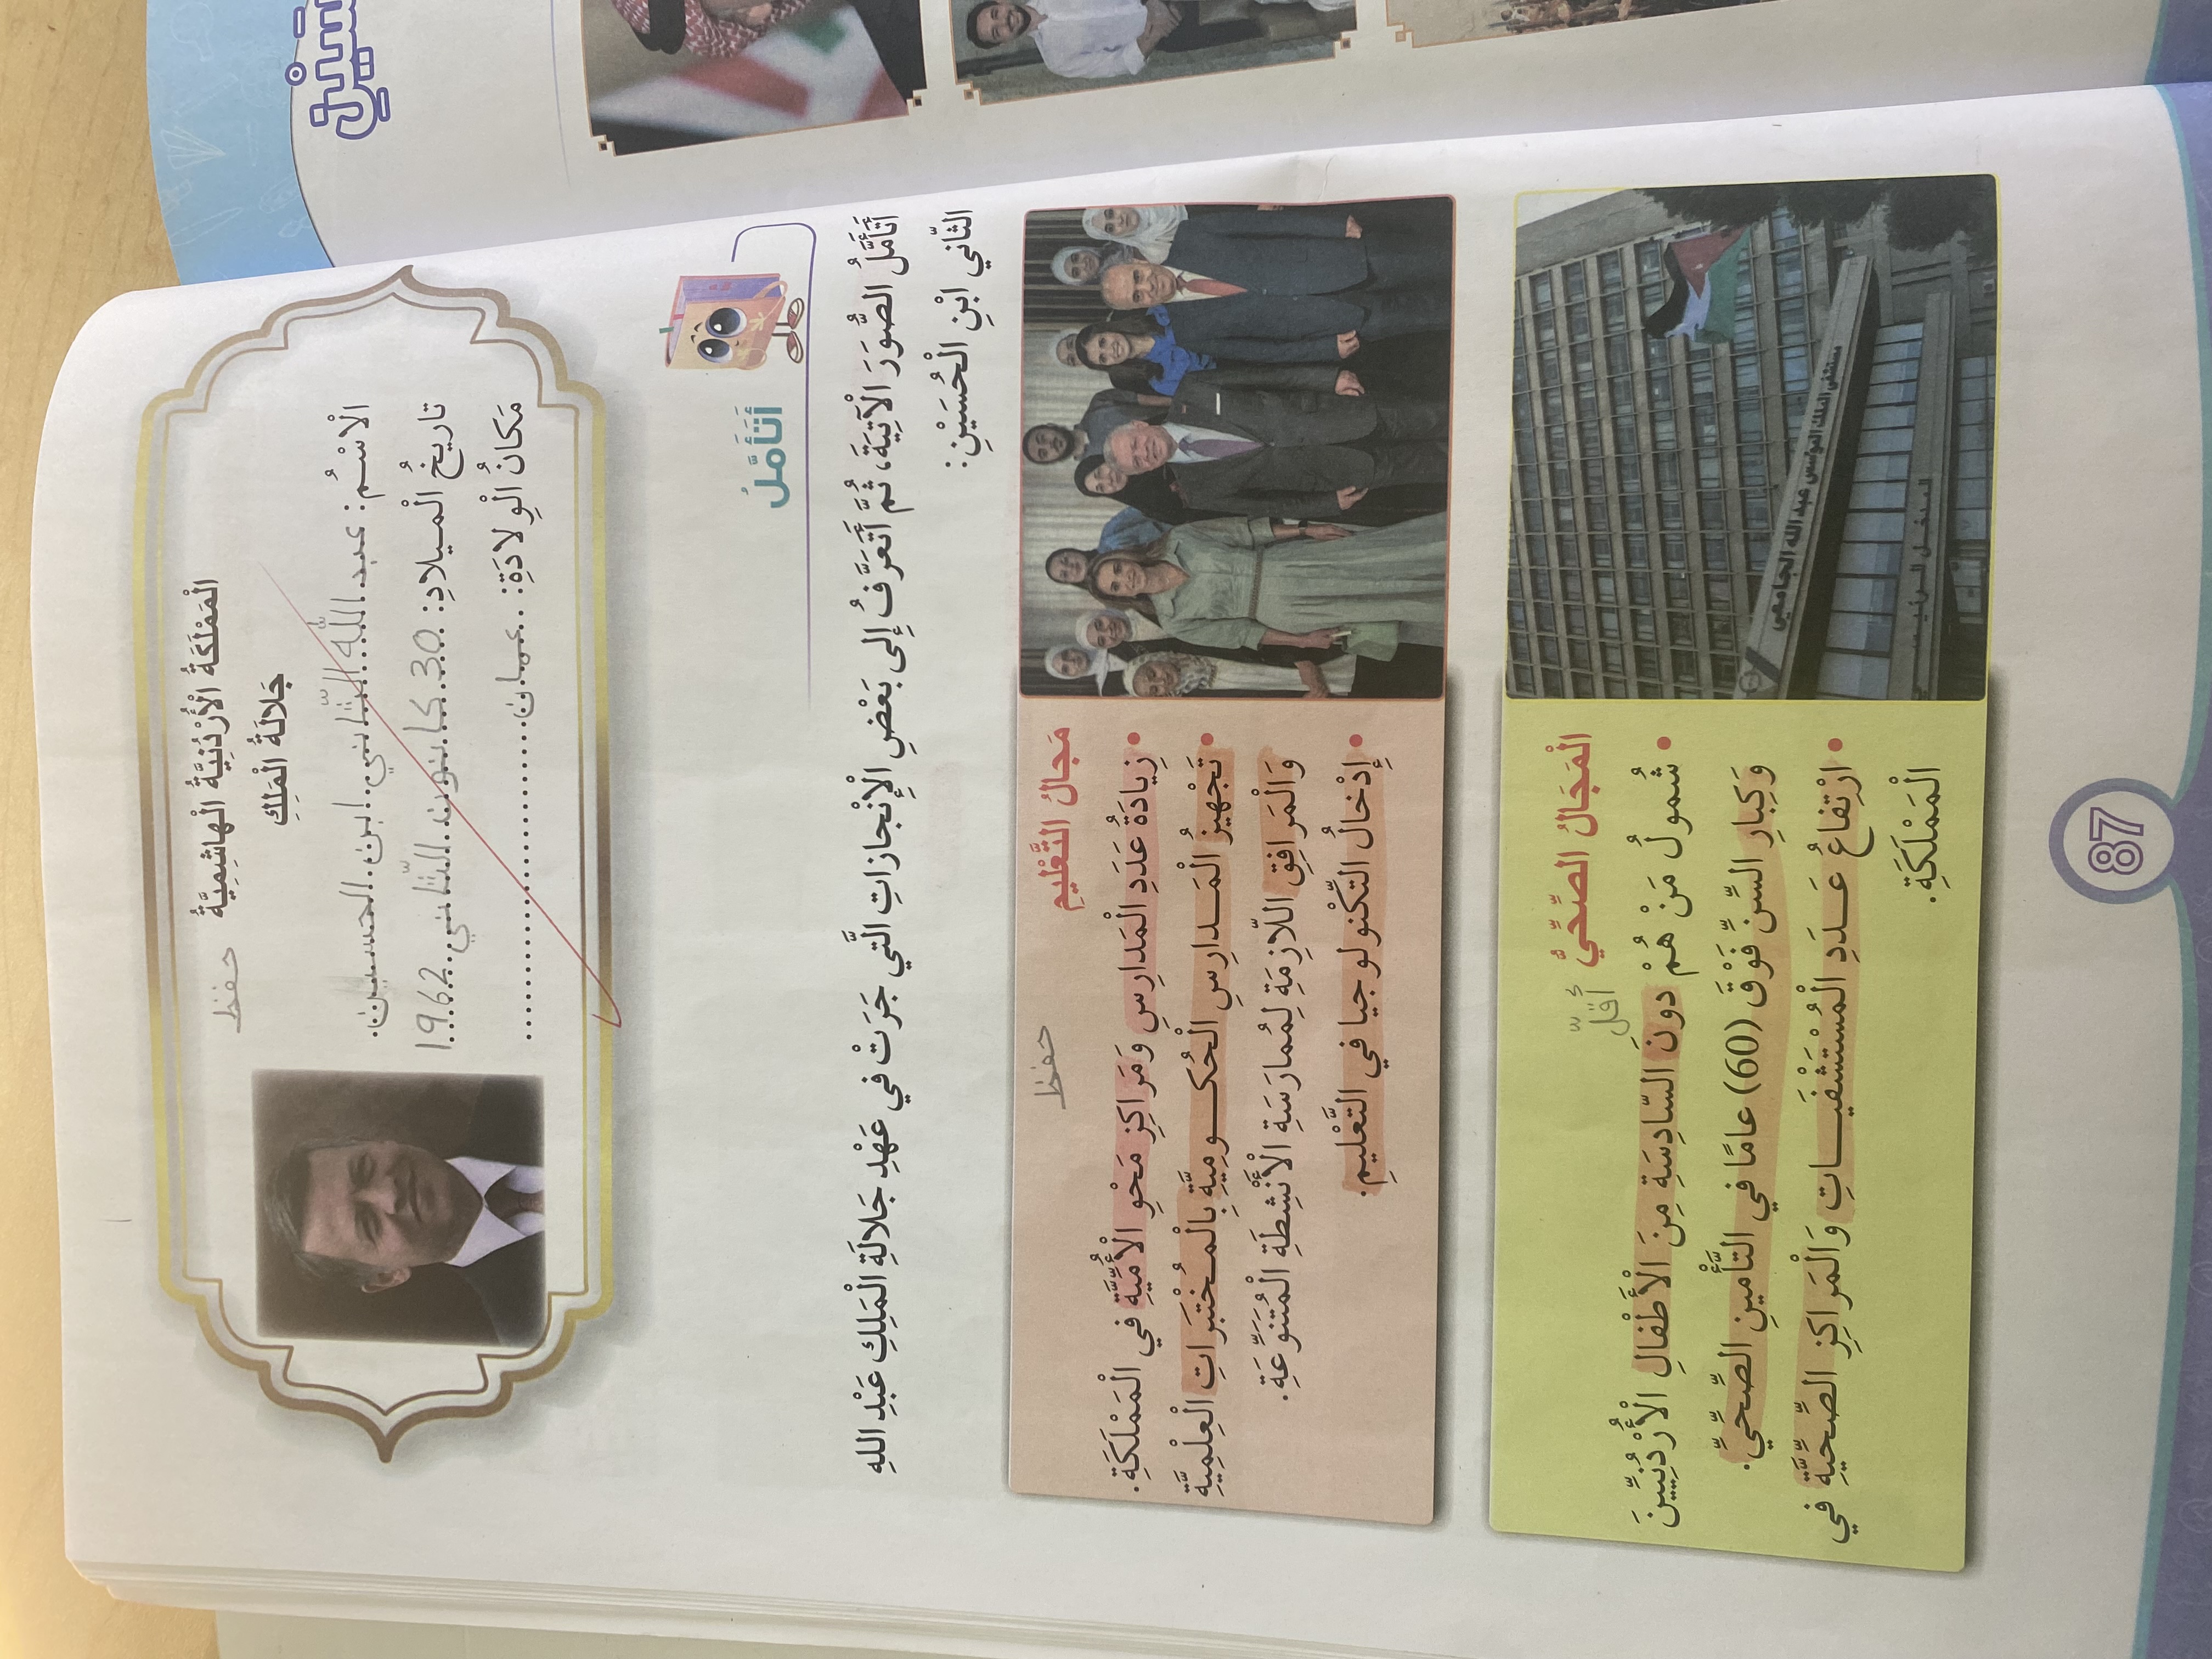 الْمَمْلَكَةُ الْأُرْدُنِيَّةُ الْهاشِمِيَّةُ
حفظ
جَلالَةُ الْمَلِكِ
الْاسْمُ: عبد الله الثّاني ابن الحسين
تاريخُ الْميلادِ: 30 كانون الثّاني 1962
مَكانُ الْوِلادَةِ: عمان
أَتَأَمَّلُ
أَتَأَمَّلُ الصُّوَرَ الْآتِيَةَ، ثُمَّ أَتَعَرَّفُ إِلى بَعْضِ الْإِنْجازاتِ الَّتي جَرَتْ في عَهْدِ جَلالَةِ الْمَلِكِ عَبْدِ اللهِ
الثّاني ابْنِ الْحُسَيْنِ:
مَجالُ التَّعْليمِ
حفظ
• زِيادَةُ عَدَدِ الْمَدارِسِ وَمَراكِزِ مَحْوِ الْأُمِّيَّةِ في الْمَمْلَكَةِ.
• تَجْهيزُ الْمَدارِسِ الْحُكومِيَّةِ بِالْمُخْتَبَراتِ الْعِلْمِيَّةِ
وَالْمَرافِقِ اللّازِمَةِ لِمُمارَسَةِ الْأَنْشِطَةِ الْمُتَنَوِّعَةِ.
• إِدْخالُ التِّكْنولوجيا في التَّعْليمِ.
الْمَجَالُ الصِّحِّيُّ
أقلّ
• شُمولُ مَنْ هُمْ دونَ السّادِسَةِ مِنَ الْأَطْفالِ الْأُرْدُنِيّينَ
وَكِبارِ السِّنِّ فَوْقَ (60) عامًا في التَّأْمينِ الصِّحِّيِّ.
• ارْتِفاعُ عَدَدِ الْمُسْتَشْفَياتِ وَالْمَراكِزِ الصِّحِّيَّةِ في
الْمَمْلَكَةِ.
مستشفى الملك المؤسس عبد الله الجامعي
87